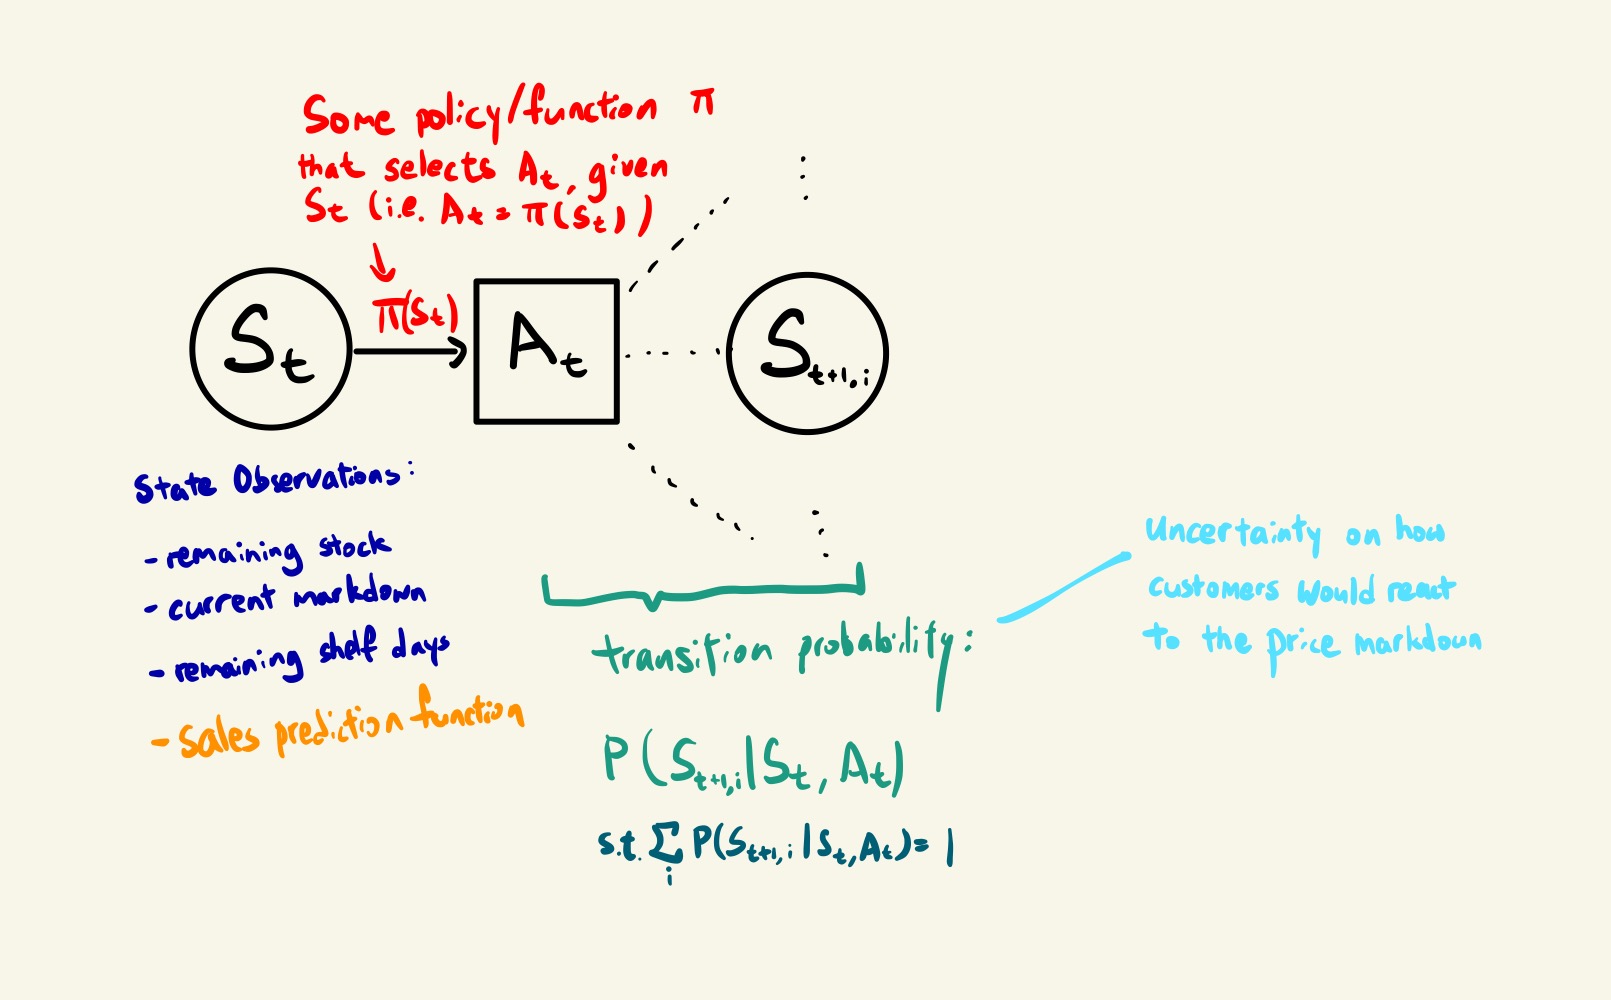 Some policy/function π
that selects Aₜ, given
Sₜ (i.e. Aₜ = π(Sₜ))
π(Sₜ)
Sₜ
Aₜ
Sₜ₊₁,ᵢ
State Observations:
- remaining stock
- current markdown
- remaining shelf days
- sales prediction function
transition probability:
P(Sₜ₊₁,ᵢ|Sₜ, Aₜ)
s.t. ∑ᵢ P(Sₜ₊₁,ᵢ|Sₜ,Aₜ) = 1
Uncertainty on how
customers would react
to the price markdown